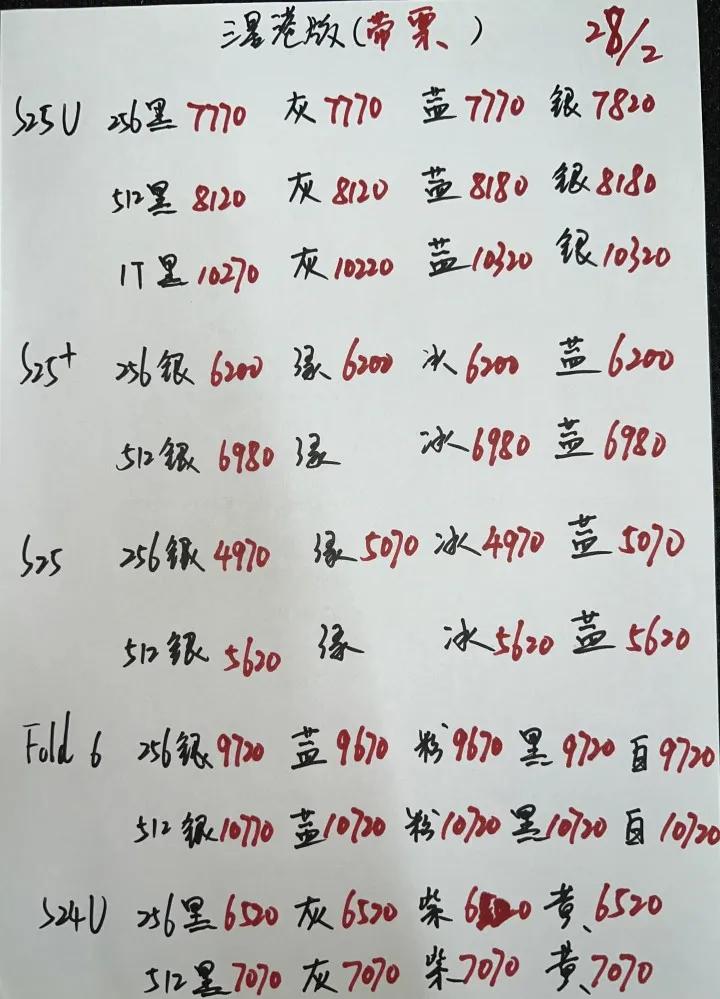 三星港版(带票) 28/2
S25U 256黑7770 灰7770 蓝7770 銀7820
512黑8120 灰8120 蓝8180 銀8180
1T黑10270 灰10220 蓝10320 銀10320
S25+ 256銀6200 绿6200 冰6200 蓝6200
512銀6980 绿 冰6980 蓝6980
S25 256銀4970 绿5070 冰4970 蓝5070
512銀5620 绿 冰5620 蓝5620
Fold 6 256銀9720 蓝9670 粉9670 黑9720 白9720
512銀10770 蓝10720 粉10720 黑10720 白10720
S24U 256黑6520 灰6520 紫 黄6520
512黑7070 灰7070 紫7070 黄7070